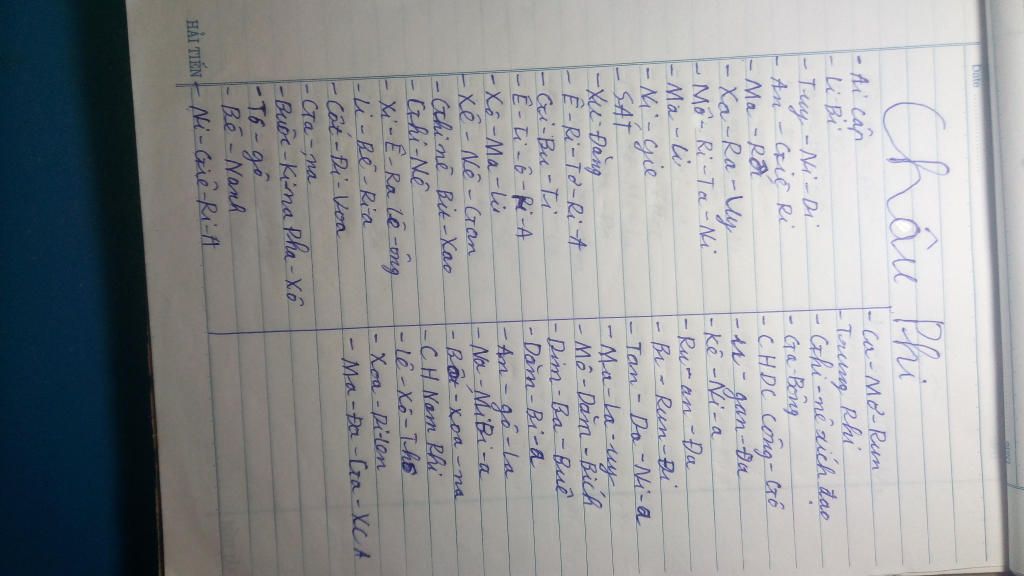 Châu Phi
- Ai Cập
- Li Bi
- Tuy-Ni-Di
- An-Giê Ri
- Ma-Rốc
- Xa-Ra-Uy
- Mô-Ri-Ta-Ni
- Ma-Li
- Ni-Giê
- SÁT
- Xu-Đăng
- Ê-Ri-Tơ-Ri-A
- Gi-Bu-Ti
- Ê-Ti-ô-Pi-A
- Xô-Ma-Li
- Xê-Nê-Gan
- Ghi nê Bít-Xao
- Ghi-Nê
- Xi-Ê-Ra lê-ông
- Li-Bê-Ria
- Cốt-Đi-Voa
- Ga-na
- Buốc-KinaPha-Xô
- Tô-gô
- Bê-Nanh
- Ni-Giê-Ri-A
- Ca-Mơ-Run
- Trung Phi
- Ghi-nê xích đạo
- Ga Bông
- CHDC Công-Gô
- U-gan-Đa
- Kê-Ni-a
- Ru-an-Đa
- Bu-Run-Đi
- Tan-Da-Ni-a
- Ma-la-uy
- Mô-Dăm-Bích
- Dim-Ba-Buê
- Dăm-Bi-a
- An-gô-la
- Na-MiBi-a
- Bốt-xoa-na
- C.H Nam Phi
- lê-Xô-Thô
- Xoa-Di-len
- Ma-Đa-Ga-XCA
HẢI TIẾN